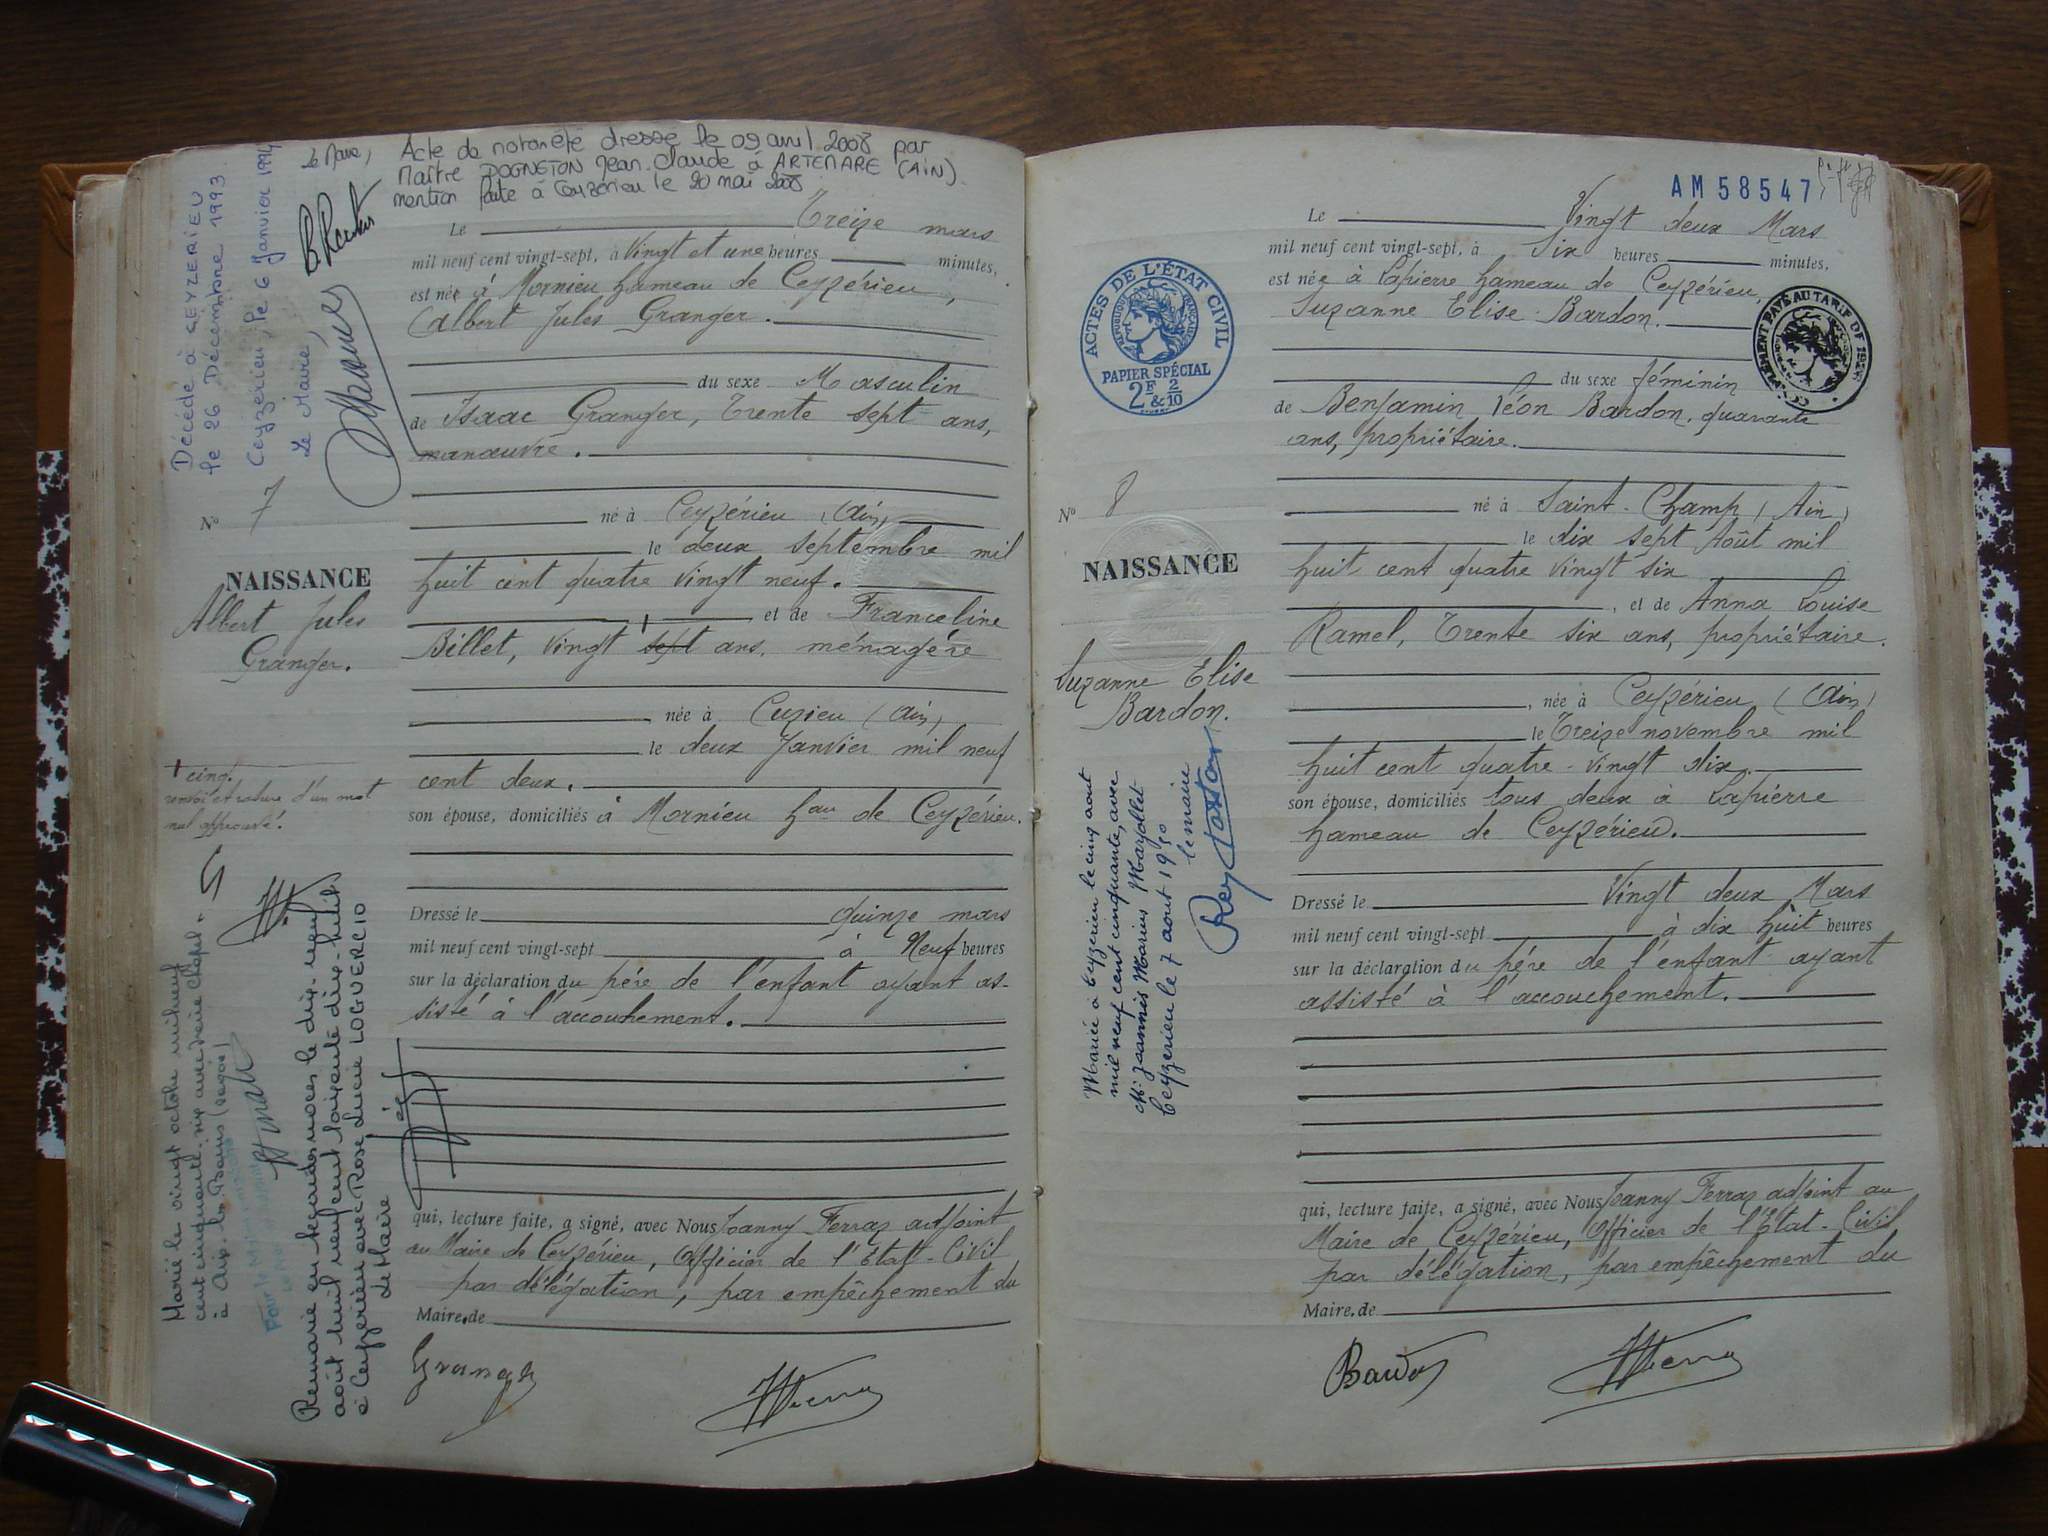 Acte de notoriété dressé le 09 avril 2008 par
Maître DOGNETON Jean-Claude à ARTEMARE (AiN).
mention faite à Ceyzérieu le 20 mai 2008
Le Maire,
Décédé à CEYZERIEU
le 26 Décembre 1993
Ceyzérieu, le 6 Janvier 1994
Le Maire,
Le Treize mars
mil neuf cent vingt-sept, à Vingt et une heures minutes,
est né à Mornieu hameau de Ceyzérieu,
Albert Jules Granger.
du sexe Masculin
de Isaac Granger, Trente sept ans,
manœuvre.
né à Ceyzérieu (Ain)
le deux septembre mil
huit cent quatre vingt neuf.
et de Franceline
Billet, vingt sept ans, ménagère
née à Cuzieu (Ain)
le deux Janvier mil neuf
cent deux.
son épouse, domiciliés à Mornieu hau de Ceyzérieu.
Dressé le quinze mars
mil neuf cent vingt-sept à Neuf heures
sur la déclaration du père de l'enfant ayant as-
sisté à l'accouchement.
qui, lecture faite, a signé, avec Nous Joanny Ferraz adjoint
au Maire de Ceyzérieu, Officier de l'Etat-Civil
par délégation, par empêchement du
Maire de
Granger
N° 7
NAISSANCE
Albert Jules
Granger.
+ cinq.
renvoi et rature d'un mot
nul approuvé.
Marié le vingt octobre mil neuf
cent cinquante-six avec
à Aix-les-Bains (Savoie)
Pour le Maire
Remarié en secondes noces le dix-neuf
août mil neuf cent soixante dix-huit
à Ceyzérieu avec Rose Lucie LOGUERCIO
Le Maire
AM 58547
Le Vingt deux Mars
mil neuf cent vingt-sept, à Six heures minutes,
est née à Lapierre hameau de Ceyzérieu,
Suzanne Elise Bardon.
du sexe féminin
de Benjamin Léon Bardon, quarante
ans, propriétaire.
né à Saint-Champ (Ain)
le dix sept Août mil
huit cent quatre vingt six
, et de Anna Louise
Ramel, Trente six ans, propriétaire.
, née à Ceyzérieu (Ain)
le Treize novembre mil
huit cent quatre-vingt dix.
son épouse, domiciliés tous deux à Lapierre
hameau de Ceyzérieu.
Dressé le Vingt deux Mars
mil neuf cent vingt-sept à dix huit heures
sur la déclaration du père de l'enfant ayant
assisté à l'accouchement.
qui, lecture faite, a signé, avec Nous Joanny Ferraz adjoint au
Maire de Ceyzérieu, Officier de l'Etat-Civil
par délégation, par empêchement du
Maire de
Bardon
ACTES DE L'ÉTAT CIVIL
RÉPUBLIQUE FRANÇAISE
PAPIER SPÉCIAL
2F & 2/10
N° 8
NAISSANCE
Suzanne Elise
Bardon.
Mariée à Ceyzérieu le cinq aout
mil neuf cent cinquante, avec
Mr Jeannis Marius Marjollet
Ceyzerieu le 7 aout 1950
le maire